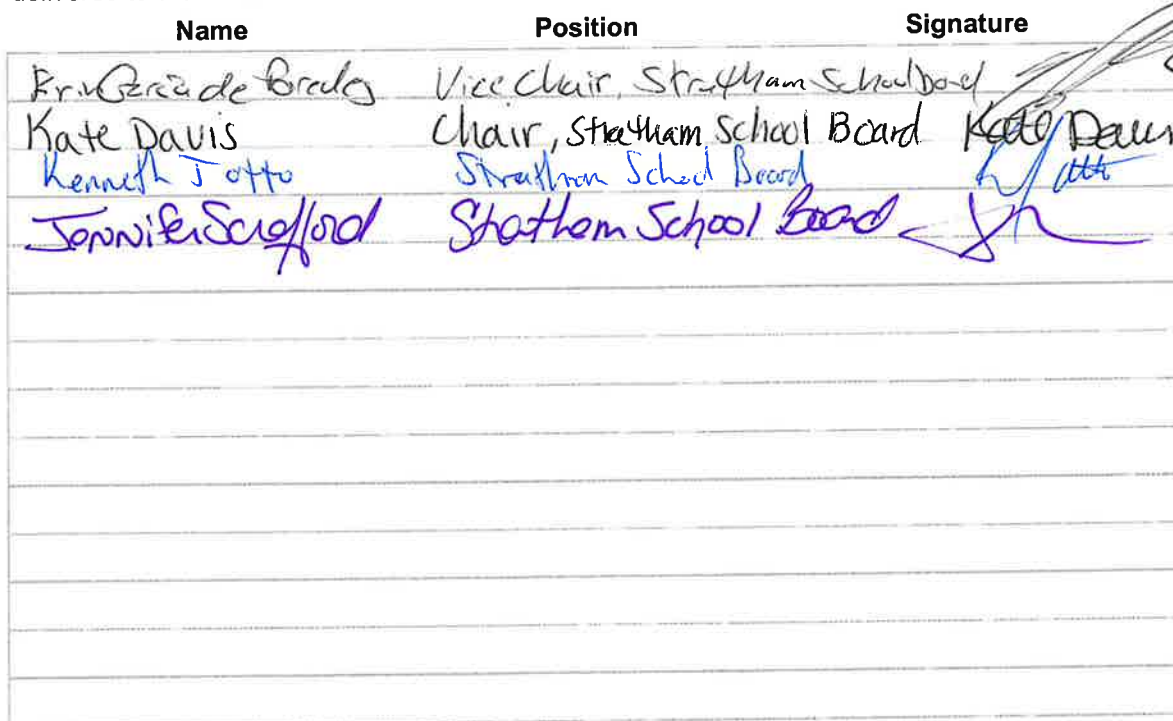 Name Position Signature
Garcia de Paredes Vice Chair, Stratham School Board
Kate Davis Chair, Stratham School Board Kate Davis
Kenneth J Otto Stratham School Board
Jennifer Scrafford Stratham School Board